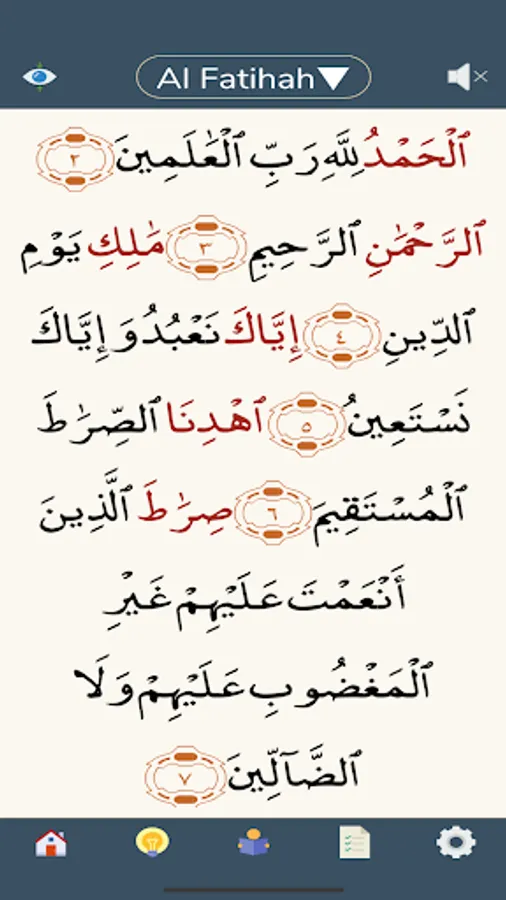 Al Fatihah▼
ٱلْحَمْدُ لِلَّهِ رَبِّ ٱلْعَٰلَمِينَ ٢
ٱلرَّحْمَٰنِ ٱلرَّحِيمِ ٣ مَٰلِكِ يَوْمِ
ٱلدِّينِ ٤ إِيَّاكَ نَعْبُدُ وَإِيَّاكَ
نَسْتَعِينُ ٥ ٱهْدِنَا ٱلصِّرَٰطَ
ٱلْمُسْتَقِيمَ ٦ صِرَٰطَ ٱلَّذِينَ
أَنْعَمْتَ عَلَيْهِمْ غَيْرِ
ٱلْمَغْضُوبِ عَلَيْهِمْ وَلَا
ٱلضَّآلِّينَ ٧